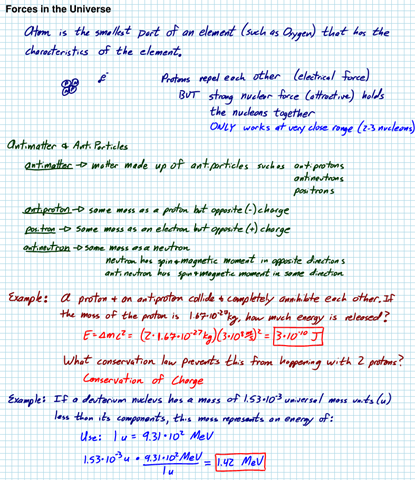 Forces in the Universe
Atom is the smallest part of an element (such as Oxygen) that has the
characteristics of the element.
Protons repel each other (electrical force)
BUT strong nuclear force (attractive) holds
the nucleons together
ONLY works at very close range (2-3 nucleons)
Antimatter & Anti Particles
antimatter → matter made up of antiparticles such as antiprotons
antineutrons
positrons
antiproton → same mass as a proton but opposite (-) charge
positron → same mass as an electron but opposite (+) charge
antineutron → same mass as a neutron
neutron has spin & magnetic moment in opposite directions
antineutron has spin & magnetic moment in same direction
Example: A proton & an antiproton collide & completely annihilate each other. If
the mass of the proton is 1.67·10⁻²⁷kg, how much energy is released?
E = Δmc² = (2·1.67·10⁻²⁷kg)(3·10⁸ m/s)² = 3·10⁻¹⁰ J
What conservation law prevents this from happening with 2 protons?
Conservation of Charge
Example: If a deuterium nucleus has a mass of 1.53·10⁻³ universal mass units (u)
less than its components, this mass represents an energy of:
Use: 1 u = 9.31·10² MeV
1.53·10⁻³u · 9.31·10² MeV / 1 u = 1.42 MeV